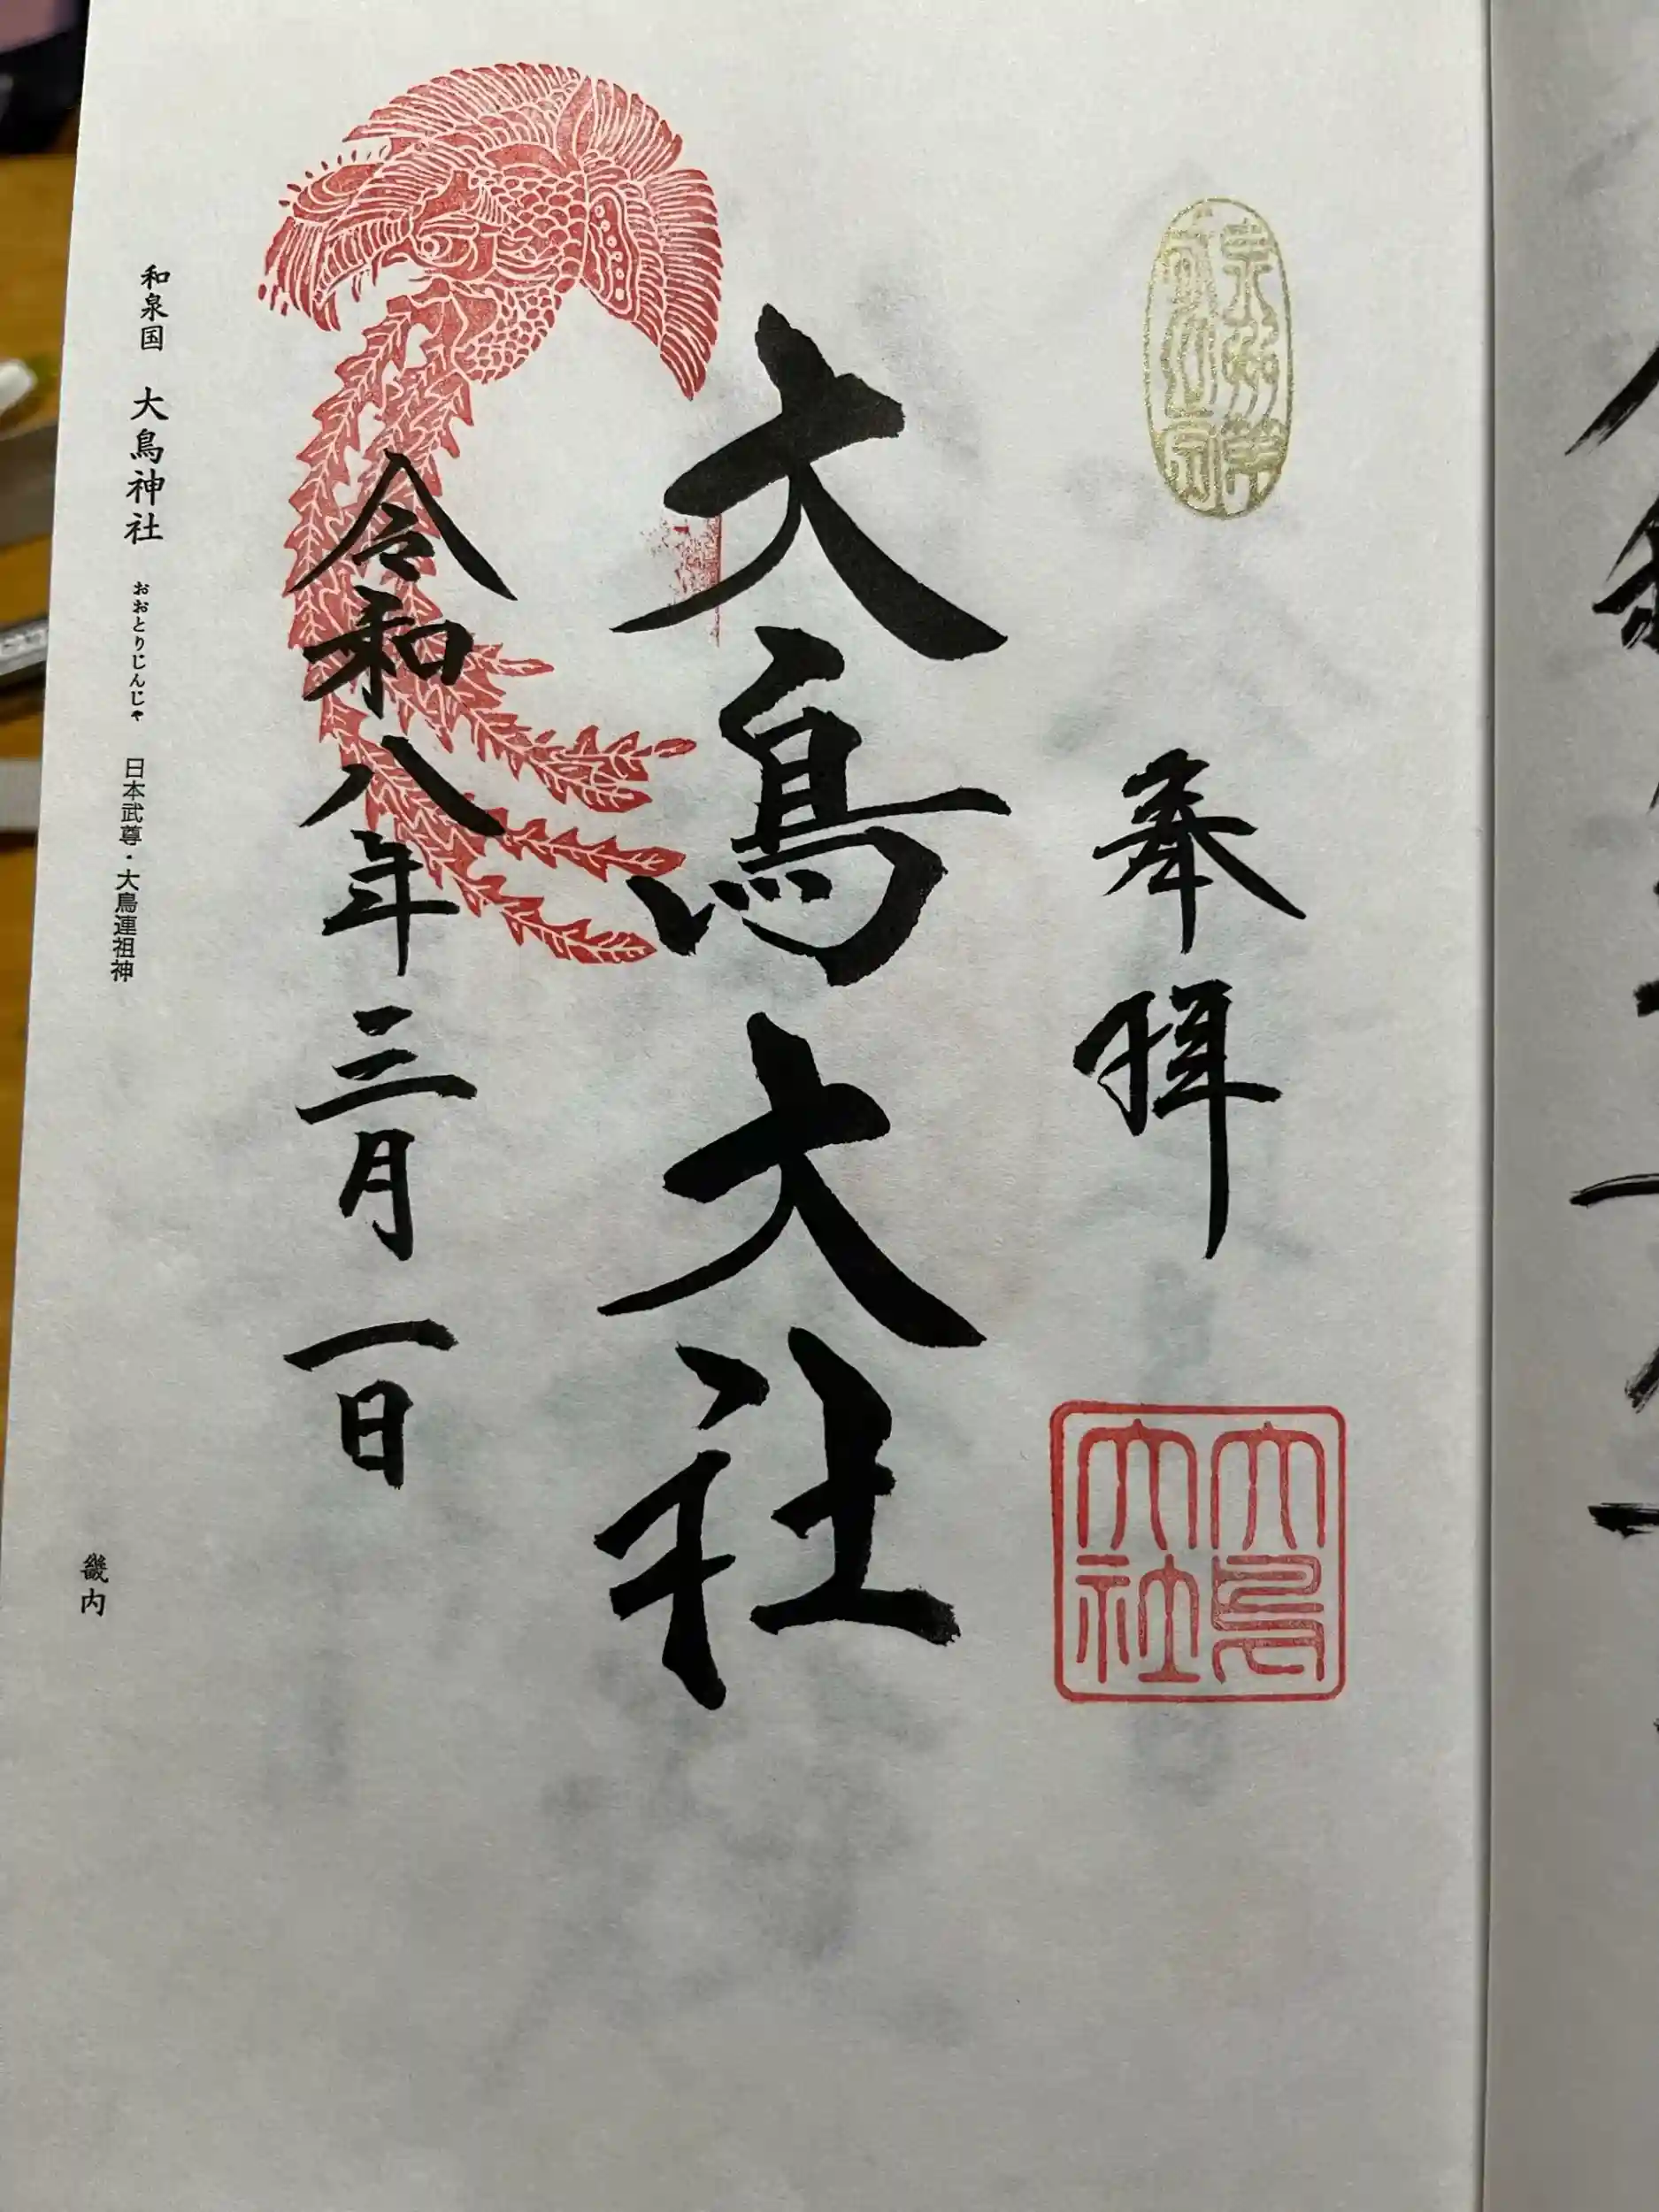 奉拝
大鳥大社
大鳥大社
令和八年三月一日
和泉国 大鳥神社 おおとりじんじゃ 日本武尊・大鳥連祖神
畿内